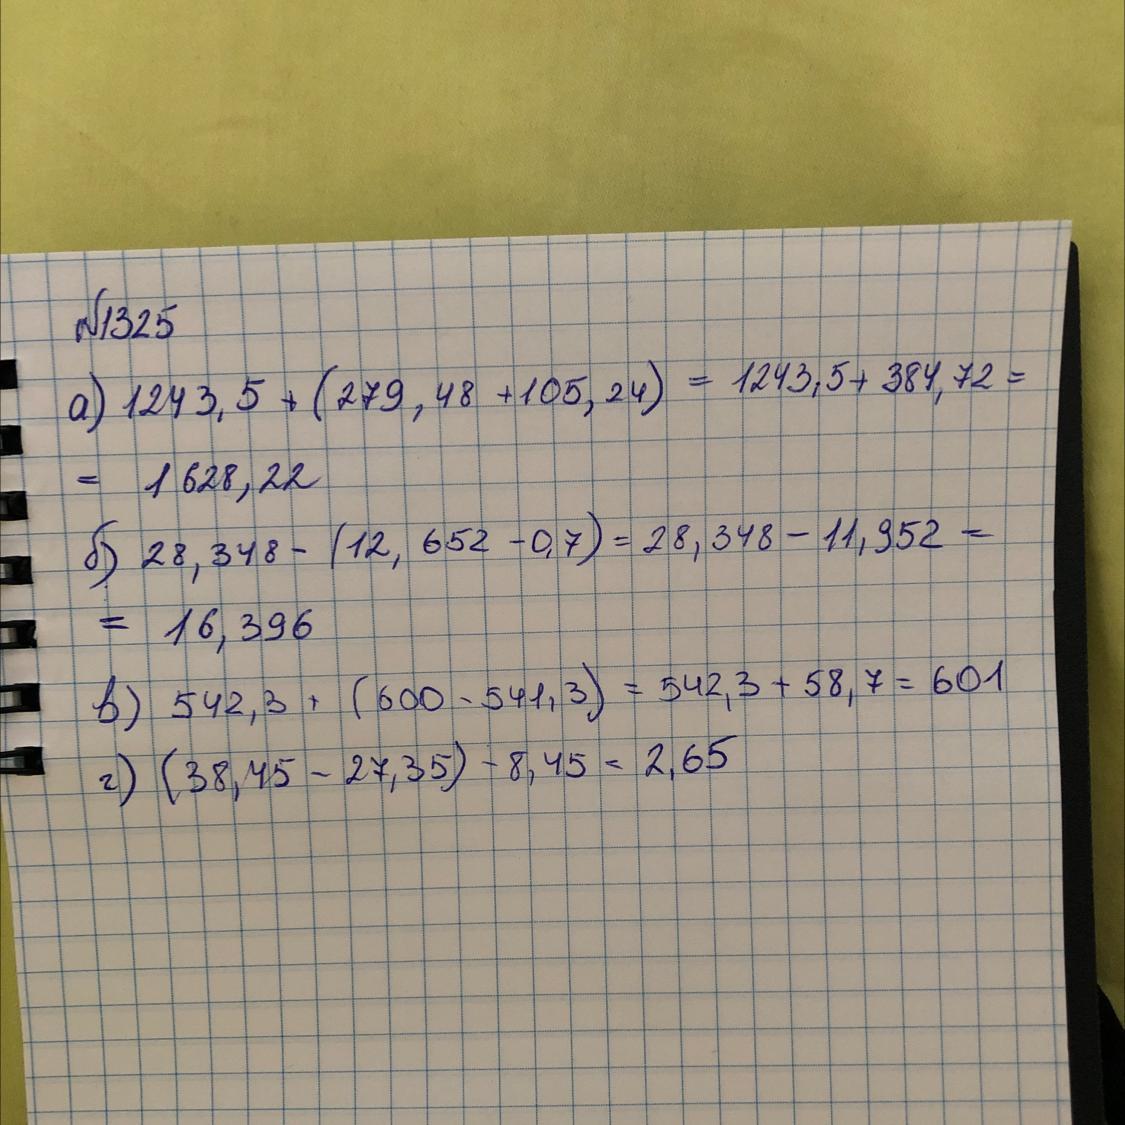 №1325
а) 1243,5 + (279,48 + 105,24) = 1243,5 + 384,72 =
= 1628,22
б) 28,348 - (12,652 - 0,7) = 28,348 - 11,952 =
= 16,396
в) 542,3 + (600 - 541,3) = 542,3 + 58,7 = 601
г) (38,45 - 27,35) - 8,45 = 2,65